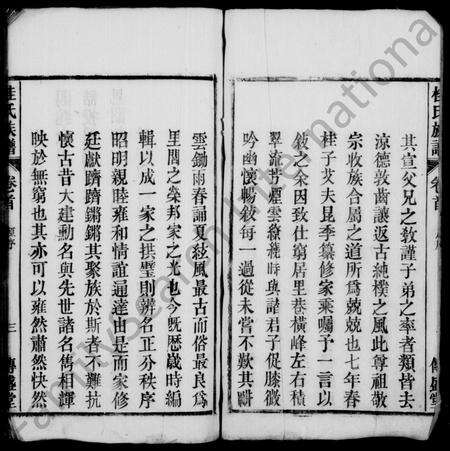 桂氏族譜
卷首
傳盛堂
其宣父兄之敎謹子弟之率者類皆去
涼德敦齒讓返古純樸之風此尊祖敬
宗收族合屬之道所爲兢兢也七年春
桂子艾夫昆季纂修家乘囑予一言以
敘之余因致仕窮居里巷橫峰左右積
翠流芳煙雲繚繞時與諸君子促膝微
吟幽懷暢敘每一過從未嘗不歎其耕
雲鋤雨春誦夏絃風最古而俗最良爲
里閭之榮邦家之光也今旣歴歲時編
輯以成一家之拱璧則辨名正分秩序
昭明親睦雍和情誼通達由是而家修
廷獻躋躋鏘鏘其聚族於斯者不難抗
懷古昔大建勳名與先世諸名雋相譚
映於無窮也其亦可以雍然肅然快然
桂氏族譜
卷首
三
傳盛堂
FamilySearch International